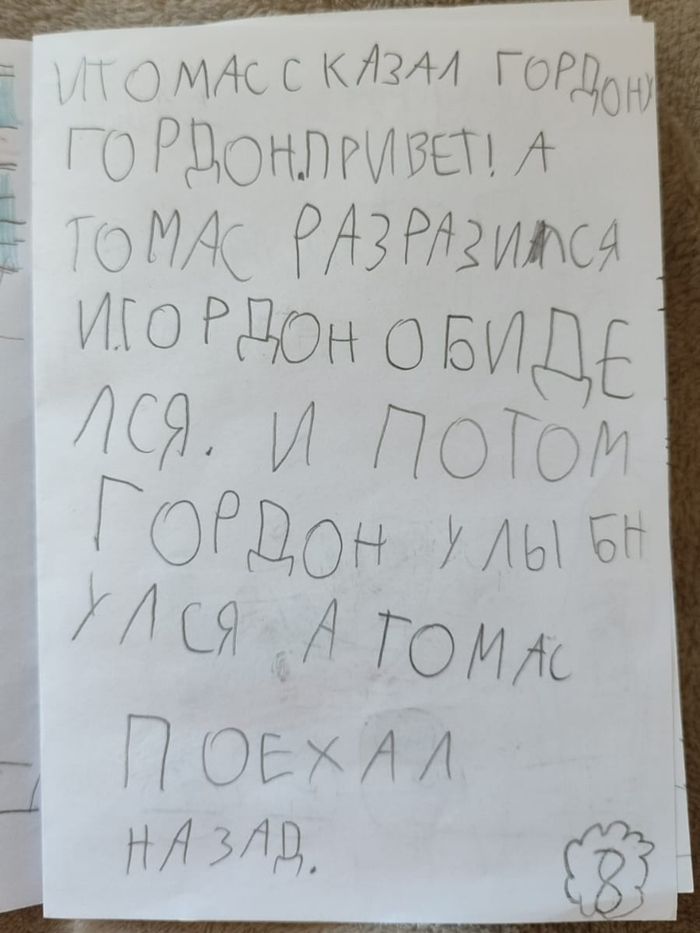 ИТОМАС СКАЗАЛ ГОРДОНУ
ГОРДОН.ПРИВЕТ! А
ТОМАС РАЗРАЗИЛСЯ
И.ГОРДОН ОБИДЕ
ЛСЯ. И ПОТОМ
ГОРДОН УЛЫБН
УЛСЯ А ТОМАС
ПОЕХАЛ
НАЗАД.
8